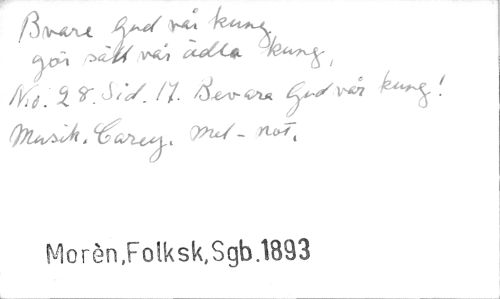 Bvare Gud vår kung
gör säll vår ädla kung,
N:o. 28. Sid. 17. Bevara Gud vår kung!
Musik. Carey. mel-not.
Morèn,Folksk,Sgb.1893